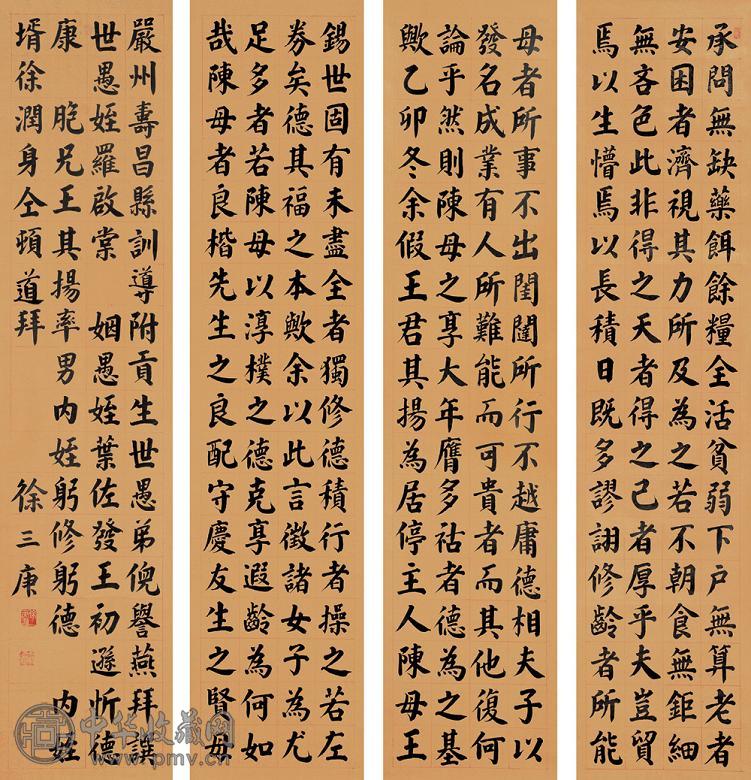 承問無缺藥餌餘糧全活貧弱下戶無算老者
安困者濟視其力所及為之若不朝食無鉅細
無吝色此非得之天者得之己者厚乎夫豈貿
焉以生懵焉以長積日既多謬詡修齡者所能
母者所事不出閨闥所行不越庸德相夫子以
發名成業有人所難能而可貴者而其他復何
論乎然則陳母之享大年膺多祜者德為之基
歟乙卯冬余假王君其揚為居停主人陳母王
錫世固有未盡全者獨修德積行者操之若左
券矣德其福之本歟余以此言徵諸女子為尤
足多者若陳母以淳樸之德克享遐齡為何如
哉陳母者良楷先生之良配守慶友生之賢母
嚴州壽昌縣訓導附貢生世愚弟倪譽燕拜譔
世愚姪羅啟棠 姻愚姪葉佐發王初遜忻德
康 胞兄王其揚率男內姪躬修躬德 內姪
壻徐潤身仝頓道拜 徐三庚
中华收藏网
www.pmv.cn